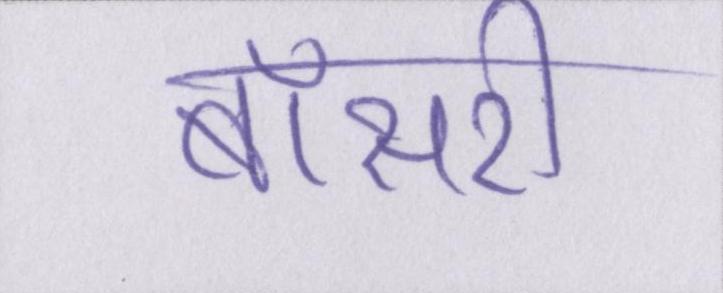 बॉसरी